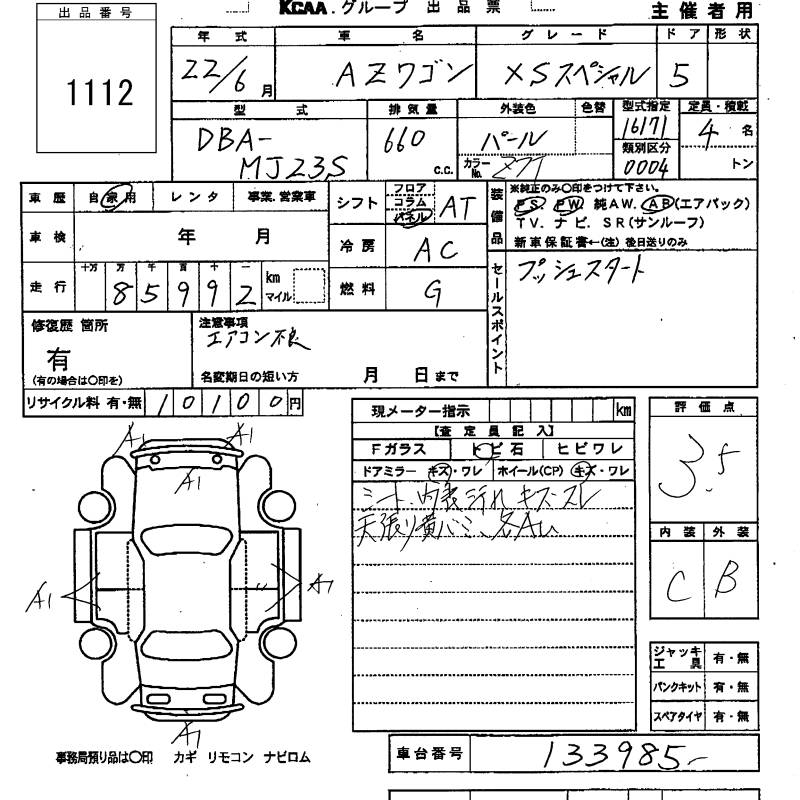 出品番号
1112
KCAA.グループ 出品票
主催者用
年式 車名 グレード ドア 形状
22/6月 AZワゴン XSスペシャル 5
型式 排気量 外装色 色替 型式指定 定員・積載
DBA-MJ23S 660 c.c. パール カラーNo. Z7T 16171 4名
類別区分 0004 トン
車歴 自家用 レンタ 事業.営業車
車検 年 月
走行 十万 万 千 百 十 一 km マイル
85992
シフト フロア コラム パネル AT
冷房 AC
燃料 G
装備品 ※純正のみ〇印をつけて下さい。
PS PW 純AW. AB(エアバック)
TV. ナビ. SR(サンルーフ)
新車保証書←(注)後日送りのみ
セールスポイント
プッシュスタート
修復歴 箇所
有
(有の場合は〇印を)
注意事項
エアコン不良
名変期日の短い方 月 日まで
リサイクル料 有・無 10100円
現メーター指示 km
【査定員記入】
Fガラス トビ石 ヒビワレ
ドアミラー キズ・ワレ ホイール(CP) キズ・ワレ
シート、内装汚れ キズ・スレ
天張り黄バミ、各AU
A1 A1
A1
A1 A1
A1
評価点
3.5
内装 外装
C B
ジャッキ工具 有・無
パンクキット 有・無
スペアタイヤ 有・無
事務局預り品は〇印 カギ リモコン ナビロム
車台番号 133985-